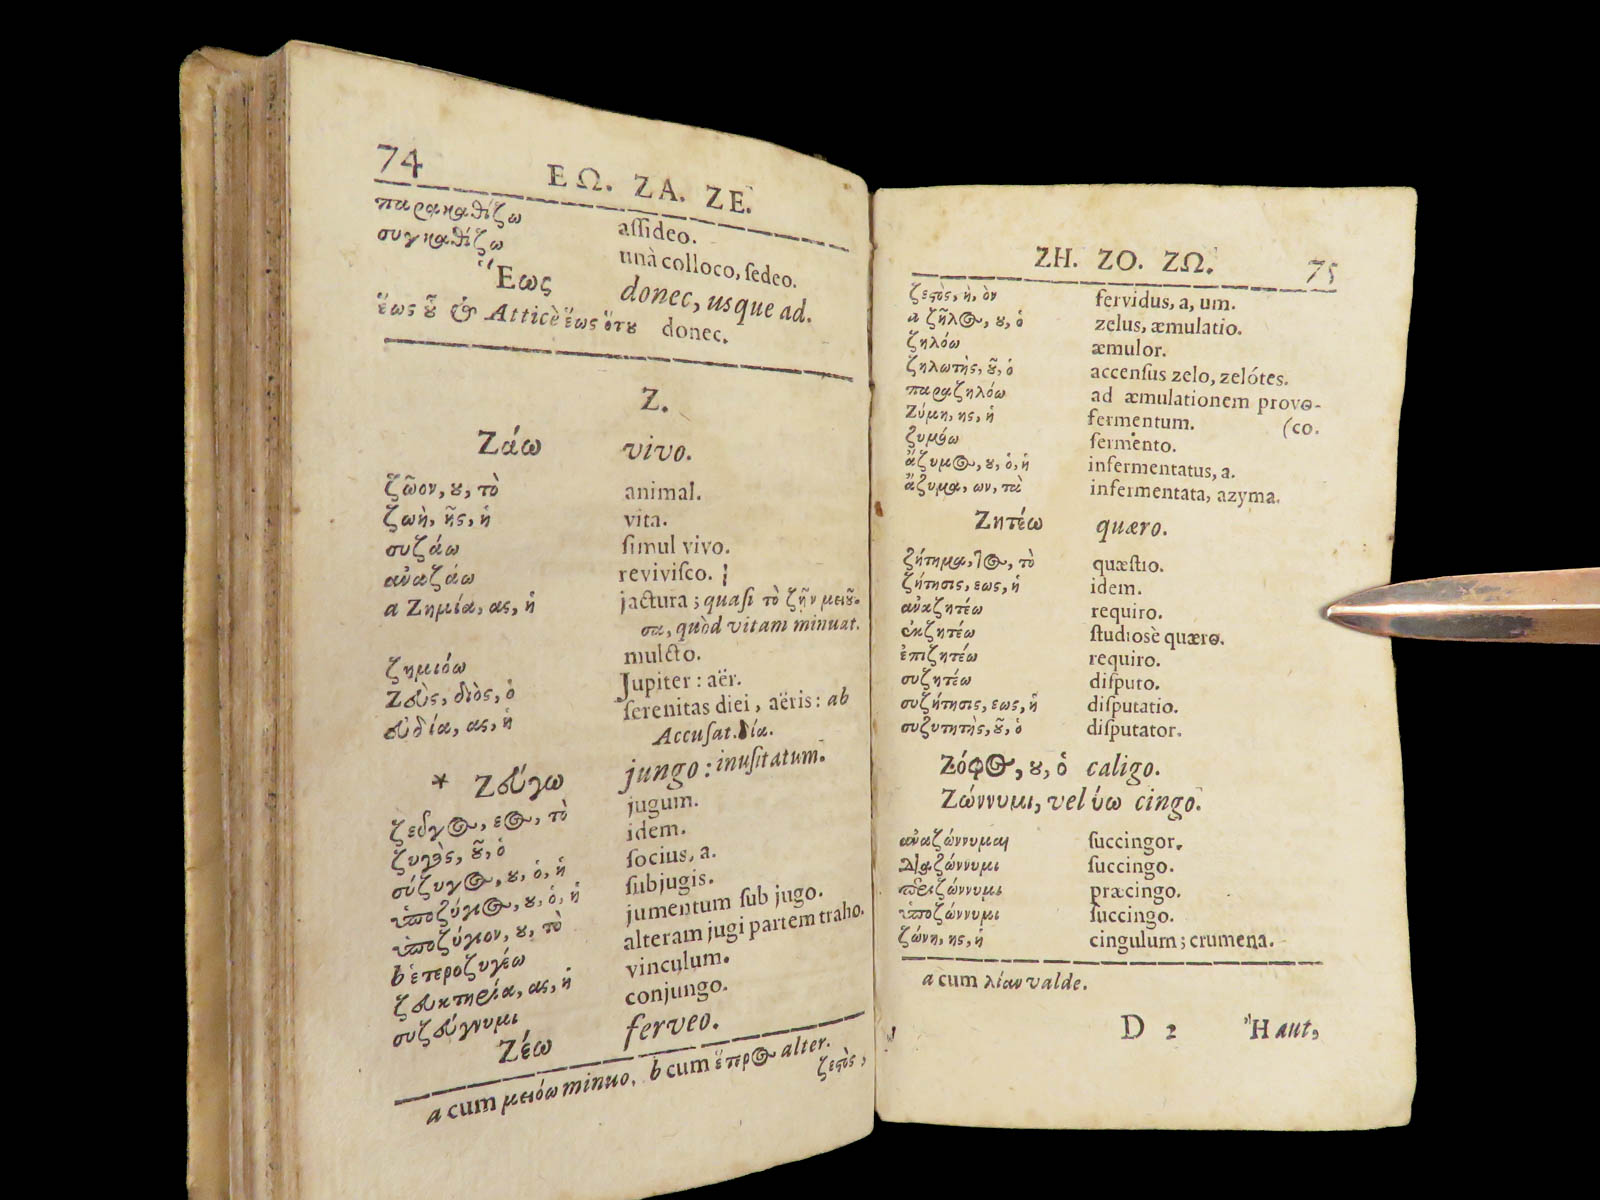 74 ΕΩ. ΖΑ. ΖΕ.
παρακαθίζω aſſideo.
συγκαθίζω unà colloco, ſedeo.
Ἕως donec, usque ad.
ἕως ȣ̃ & Atticè ἕως ὅτȣ donec.
Z.
Ζάω vivo.
ζῶον, ȣ, τὸ animal.
ζωὴ, ῆς, ἡ vita.
συζάω ſimul vivo.
ἀναζάω reviviſco.
a Ζημία, ας, ἡ jactura; quaſi τὸ ζῆν μειȣ̃-
σα, quòd vitam minuat.
ζημιόω mulcto.
Ζεὺς, διὸς, ὁ Jupiter: aër.
εὐδία, ας, ἡ ſerenitas diei, aëris: ab
Accuſat. δία.
* Ζεύγω jungo: inuſitatum.
ζεῦγος, εος, τὸ jugum.
ζυγὸς, ȣ̃, ὁ idem.
σύζυγος, ȣ, ὁ, ἡ ſocius, a.
ὑποζύγιος, ȣ, ὁ, ἡ ſubjugis.
ὑποζύγιον, ȣ, τὸ jumentum ſub jugo.
b ἑτεροζυγέω alteram jugi partem traho.
ζευκτηρία, ας, ἡ vinculum.
συζεύγνυμι conjungo.
Ζέω ferveo.
a cum μειόω minuo. b cum ἕτερος alter.
ζεςὸς,
ΖΗ. ΖΟ. ΖΩ. 75
ζεςὸς, ὴ, ὸν fervidus, a, um.
a ζῆλος, ȣ, ὁ zelus, æmulatio.
ζηλόω æmulor.
ζηλωτὴς, ȣ̃, ὁ accenſus zelo, zelótes.
παραζηλόω ad æmulationem provo-
Ζύμη, ης, ἡ fermentum. (co.
ζυμόω fermento.
ἄζυμος, ȣ, ὁ, ἡ infermentatus, a.
ἄζυμα, ων, τὰ infermentata, azyma.
Ζητέω quæro.
ζήτημα, τος, τὸ quæſtio.
ζήτησις, εως, ἡ idem.
ἀναζητέω requiro.
ἐκζητέω ſtudiosè quæro.
ἐπιζητέω requiro.
συζητέω diſputo.
συζήτησις, εως, ἡ diſputatio.
συζυτητὴς, ȣ̃, ὁ diſputator.
Ζόφος, ȣ, ὁ caligo.
Ζώννυμι, vel ύω cingo.
ἀναζώννυμαι ſuccingor.
διαζώννυμι ſuccingo.
περιζώννυμι præcingo.
ὑποζώννυμι ſuccingo.
ζώνη, ης, ἡ cingulum; crumena.
a cum λίαν valde.
D 2 Ἢ aut,